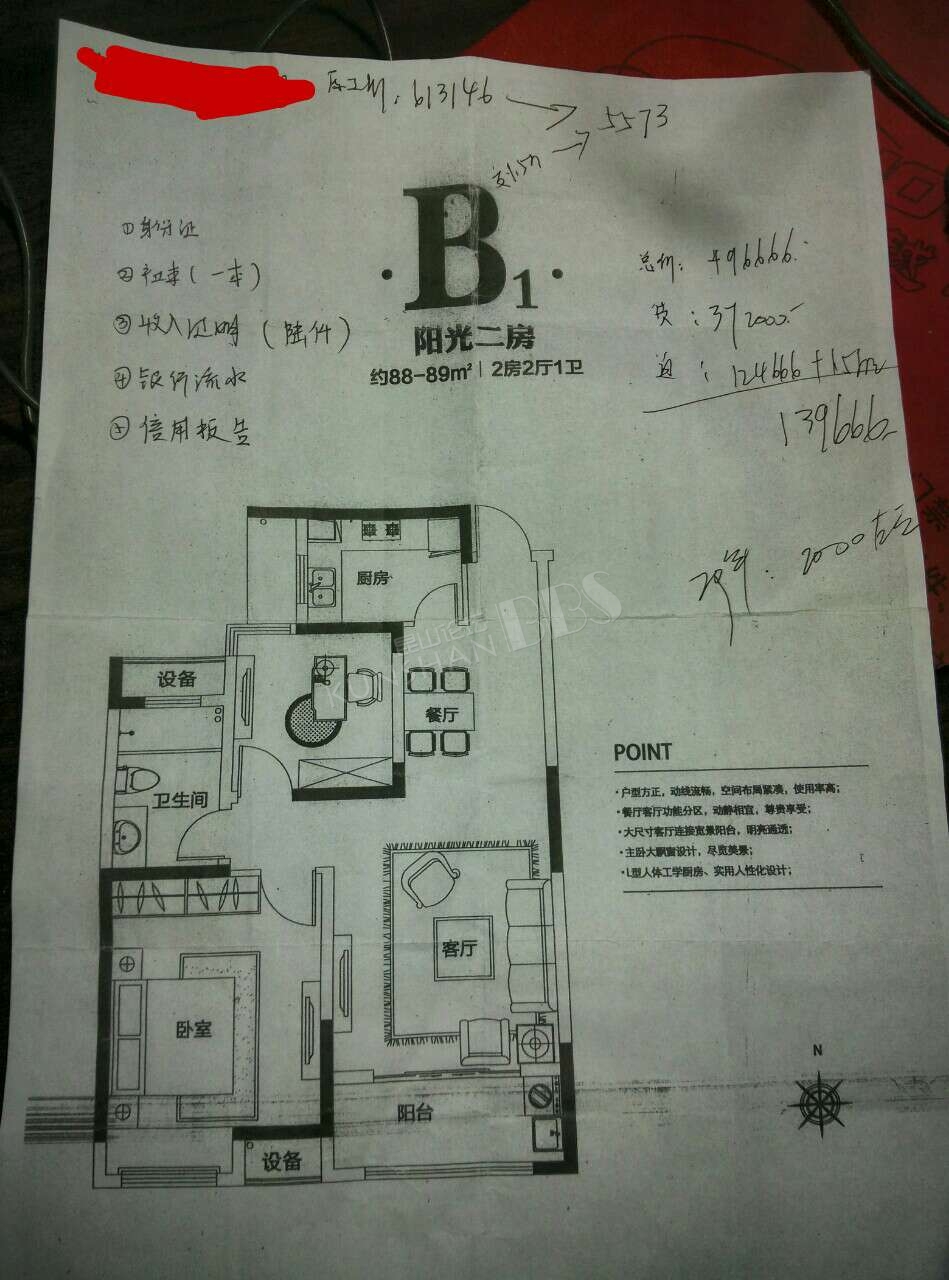 613146 → 5573
B1
阳光二房
约88-89m² | 2房2厅1卫
①身份证
②
③收入证明
④银行流水
⑤信用报告
总价: 496666.
贷: 372000-
: 124666+15
139666-
20年. 2000左右
厨房
设备
餐厅
卫生间
客厅
卧室
阳台
设备
KUNSHAN BBS
POINT
·户型方正,动线流畅,空间布局紧凑,使用率高;
·餐厅客厅功能分区,动静相宜,尊贵享受;
·大尺寸客厅连接宽景阳台,明亮通透;
·主卧大飘窗设计,尽览美景;
·L型人体工学厨房、实用人性化设计;
N